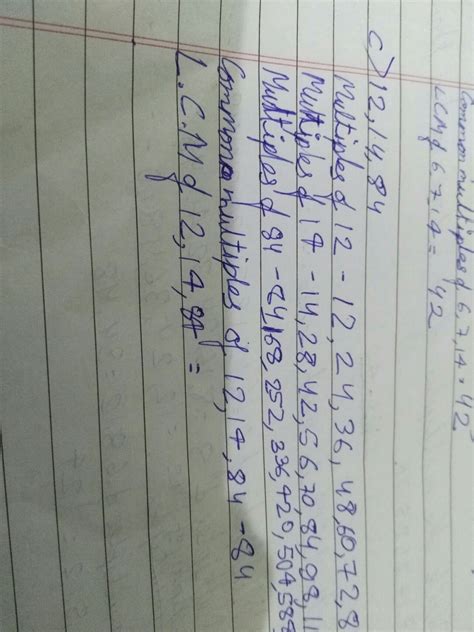 Common multiples of 6,7,14 = 42
LCM of 6,7,14 = 42
c) 12,14,84
Multiples of 12 - 12, 24, 36, 48, 60, 72, 8
Multiples of 14 - 14, 28, 42, 56, 70, 84, 98, 11
Multiples of 84 - 84, 168, 252, 336, 420, 504, 588
Common multiples of 12, 14, 84 - 84
L.C.M of 12, 14, 84 =